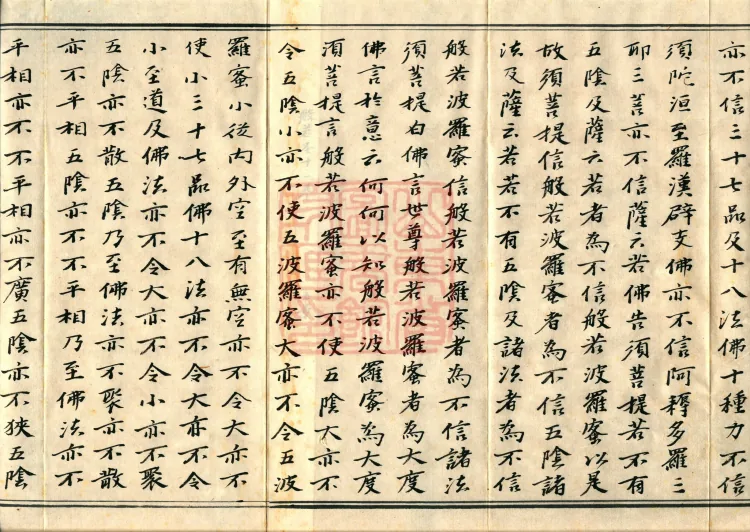 亦不信三十七品及十八法佛十種力不信
須陀洹至羅漢辟支佛亦不信阿耨多羅三
耶三菩亦不信薩云若佛告須菩提若不有
五陰及薩云若者為不信般若波羅蜜以是
故須菩提信般若波羅蜜者為不信五陰諸
法及薩云若若不有五陰及諸法者為不信
般若波羅蜜信般若波羅蜜者為不信諸法
須菩提白佛言世尊般若波羅蜜者為大度
佛言於意云何何以知般若波羅蜜為大度
須菩提言般若波羅蜜亦不使五陰大亦不
令五陰小亦不使五波羅蜜大亦不令五波
羅蜜小從內外空至有無空亦不令大亦不
使小三十七品佛十八法亦不令大亦不令
小至道及佛法亦不令大亦不令小亦不聚
五陰亦不散五陰乃至佛法亦不聚亦不散
亦不平相五陰亦不不平相乃至佛法亦不
平相亦不不平相亦不廣五陰亦不狹五陰